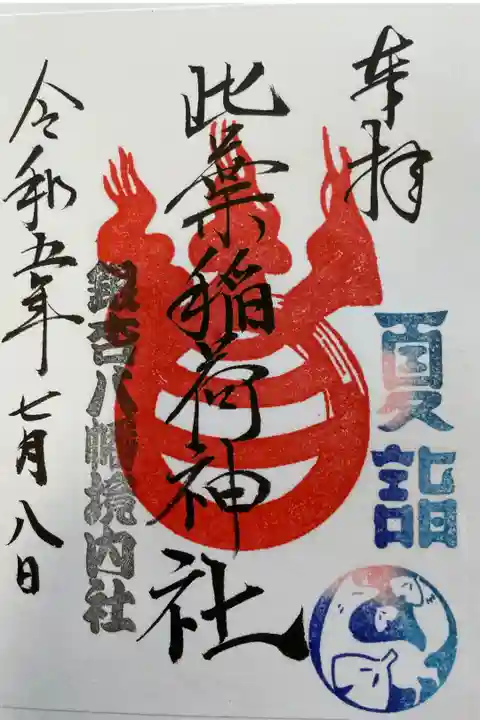 奉拝
夏詣
此葉稲荷神社
銀杏八幡境内社
令和五年七月八日